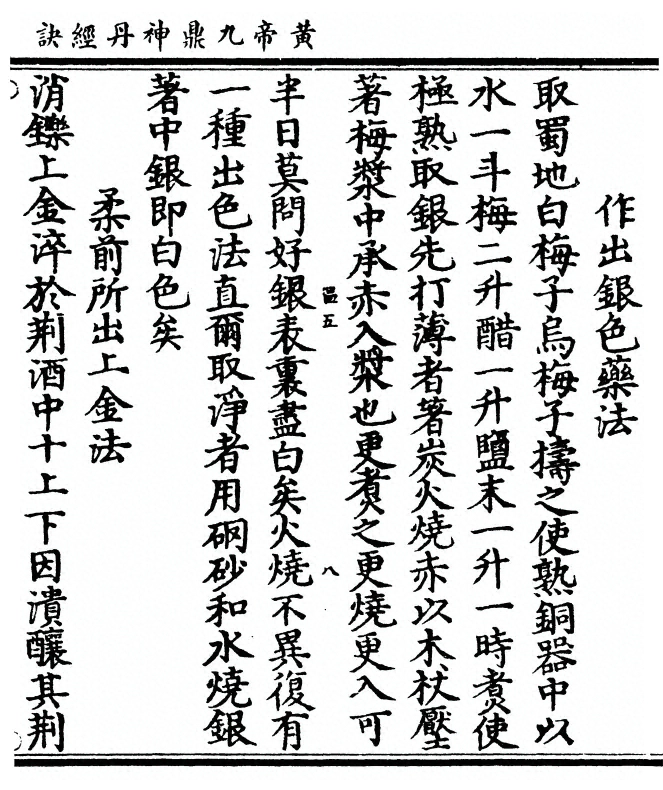 黃帝九鼎神丹經訣
作出銀色藥法
取蜀地白梅子烏梅子擣之使熟銅器中以
水一斗梅二升醋一升鹽末一升一時煮使
極熟取銀先打薄者著炭火燒赤以木杖壓
著梅漿中承赤入漿也更煮之更燒更入可
區五
八
半日莫問好銀表裏盡白矣火燒不異復有
一種出色法直爾取淨者用硇砂和水燒銀
著中銀即白色矣
柔前所出上金法
消鑠上金淬於荆酒中十上下因潰釀其荆